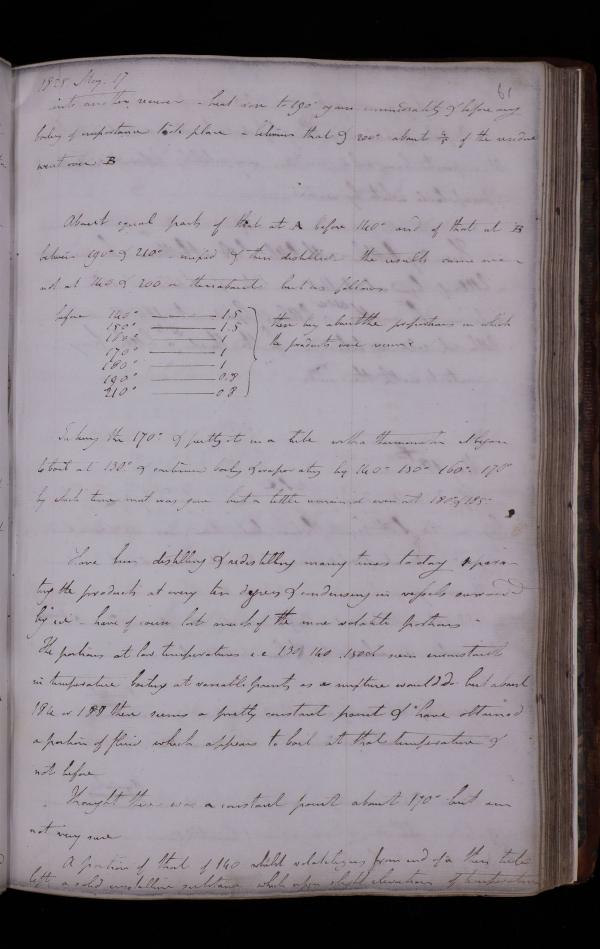 1825 May. 17
61
into another receiver - heat rose to 190° again & before any
boiling of importance took place - between that & 200° about of the residue
went over B
About equal parts of that at A before 140° and of that at B
between 190° & 210° mixed & then distilled the results came over
not at 140 & 200 or thereabouts but as follows
before 140° ——— 1.5
150° ——— 1.5
160° ——— 1
170° ——— 1
180° ——— 1
190° ——— 0.8
210° ——— 0.8
these being about the proportions in which
the products were received
Taking the 170° & putting it in a tube with a thermometer it began
to boil at 130° & continued boiling & evaporating by 140° 150° 160° 170°
by which time most was gone but a little remained even at 180 & 185°
Have been distilling & redistilling many times today separa-
ting the products at every ten degrees & condensing in vessels surrounded
by ice - have of course lost much of the more volatile portions -
The portions at low temperatures i.e. 130 140 150 &c seem inconstant
in temperature boiling at variable points as a mixture would do but about
186 or 188 there seems a pretty constant point & have obtained
a portion of fluid which appears to boil at that temperature &
not before
Thought there was a constant point about 170° but am
not very sure
A portion of that of 140 whilst volatilizing from end of a thin tube
left a solid crystalline substance which upon slight elevation of temperature